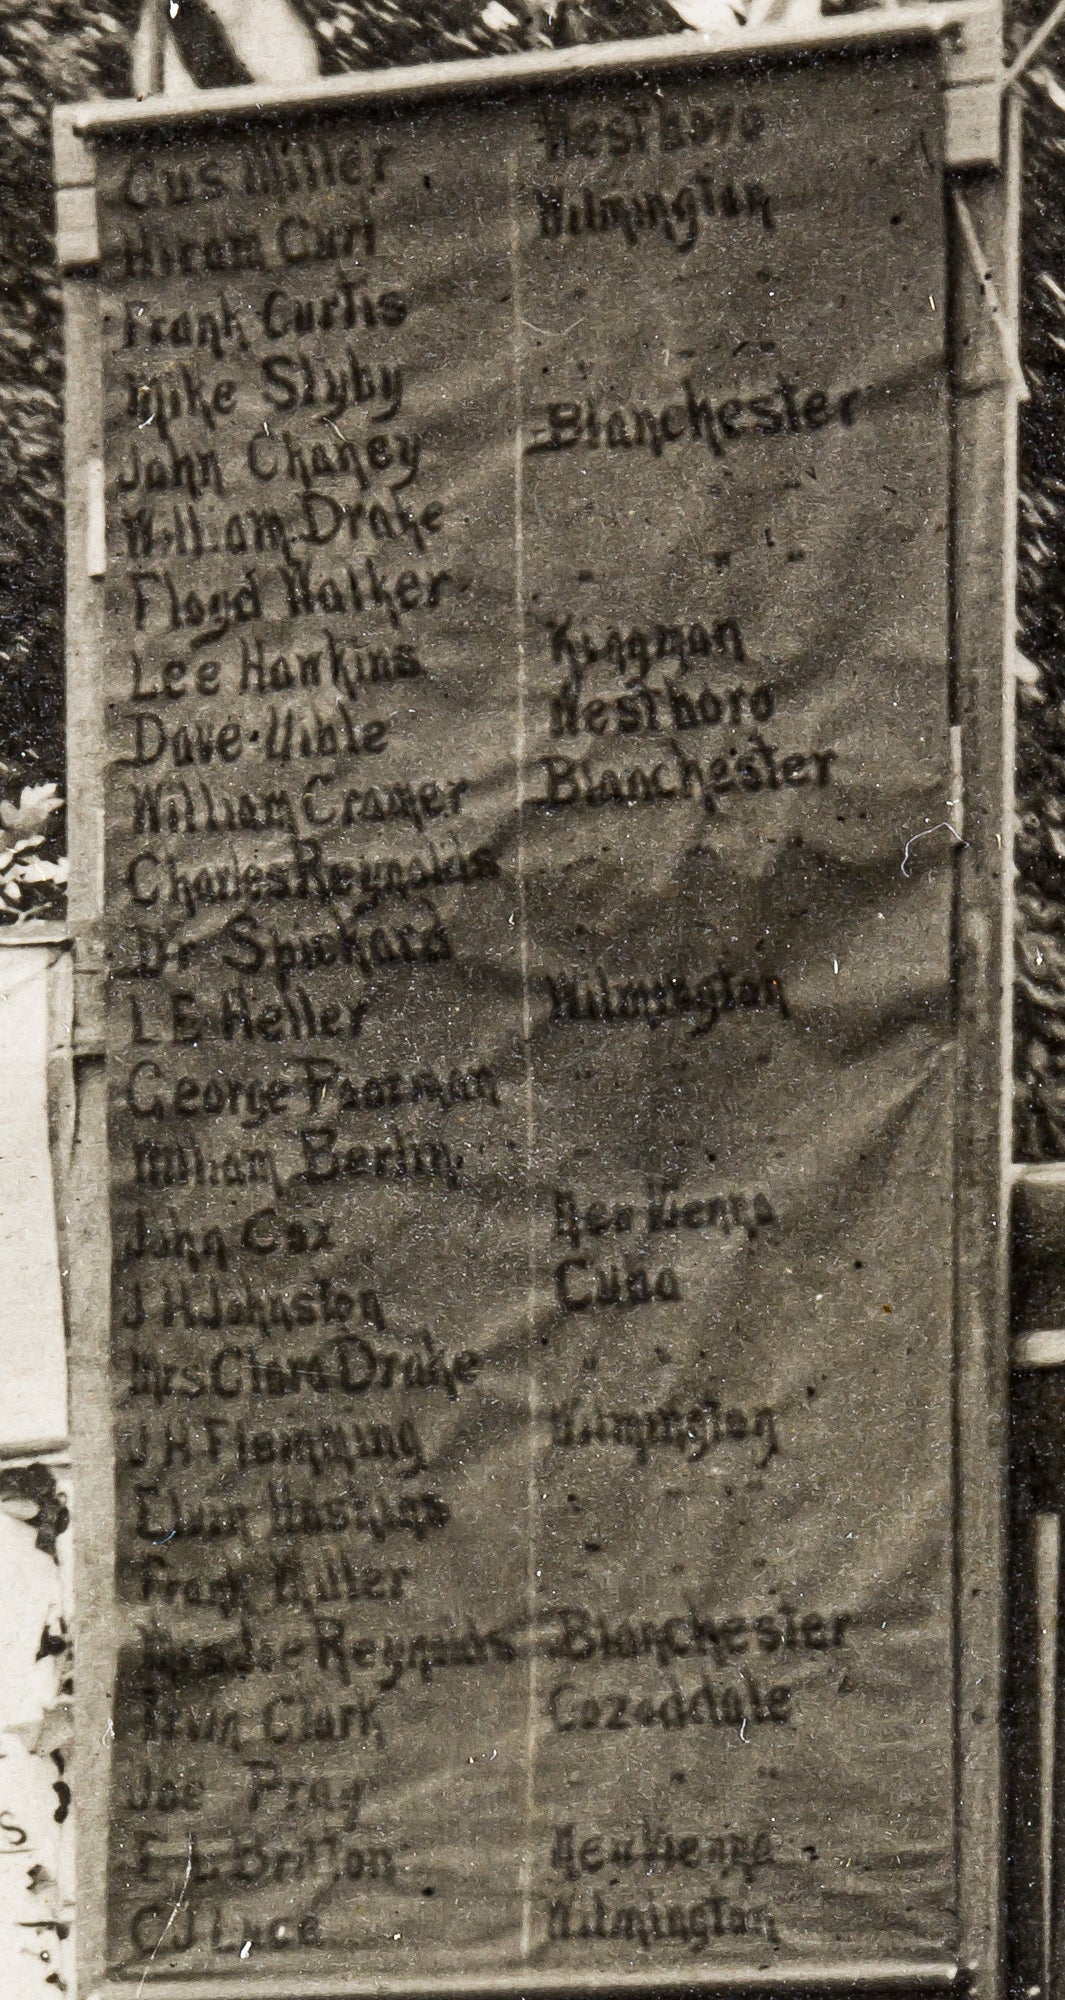 Gus Miller Westboro
Hiram Curl Wilmington
Frank Curtis
Mike Slyby " "
John Chaney Blanchester
William Drake " "
Floyd Walker " " "
Lee Hawkins Kingman
Dave Uible Westboro
William Cramer Blanchester
Charles Reynolds
Dr Spickard
L E Heller Wilmington
George Poorman " "
William Berlin " "
John Cox New Vienna
J H Johnston Cuba
Mrs Clara Drake " "
J H Flemming Wilmington
Elmer Haskins " "
Frank Miller " "
Reynolds Blanchester
Irvin Clark Cozaddale
Joe Pray " "
F L Britton New Vienna
C J Luce Wilmington
S